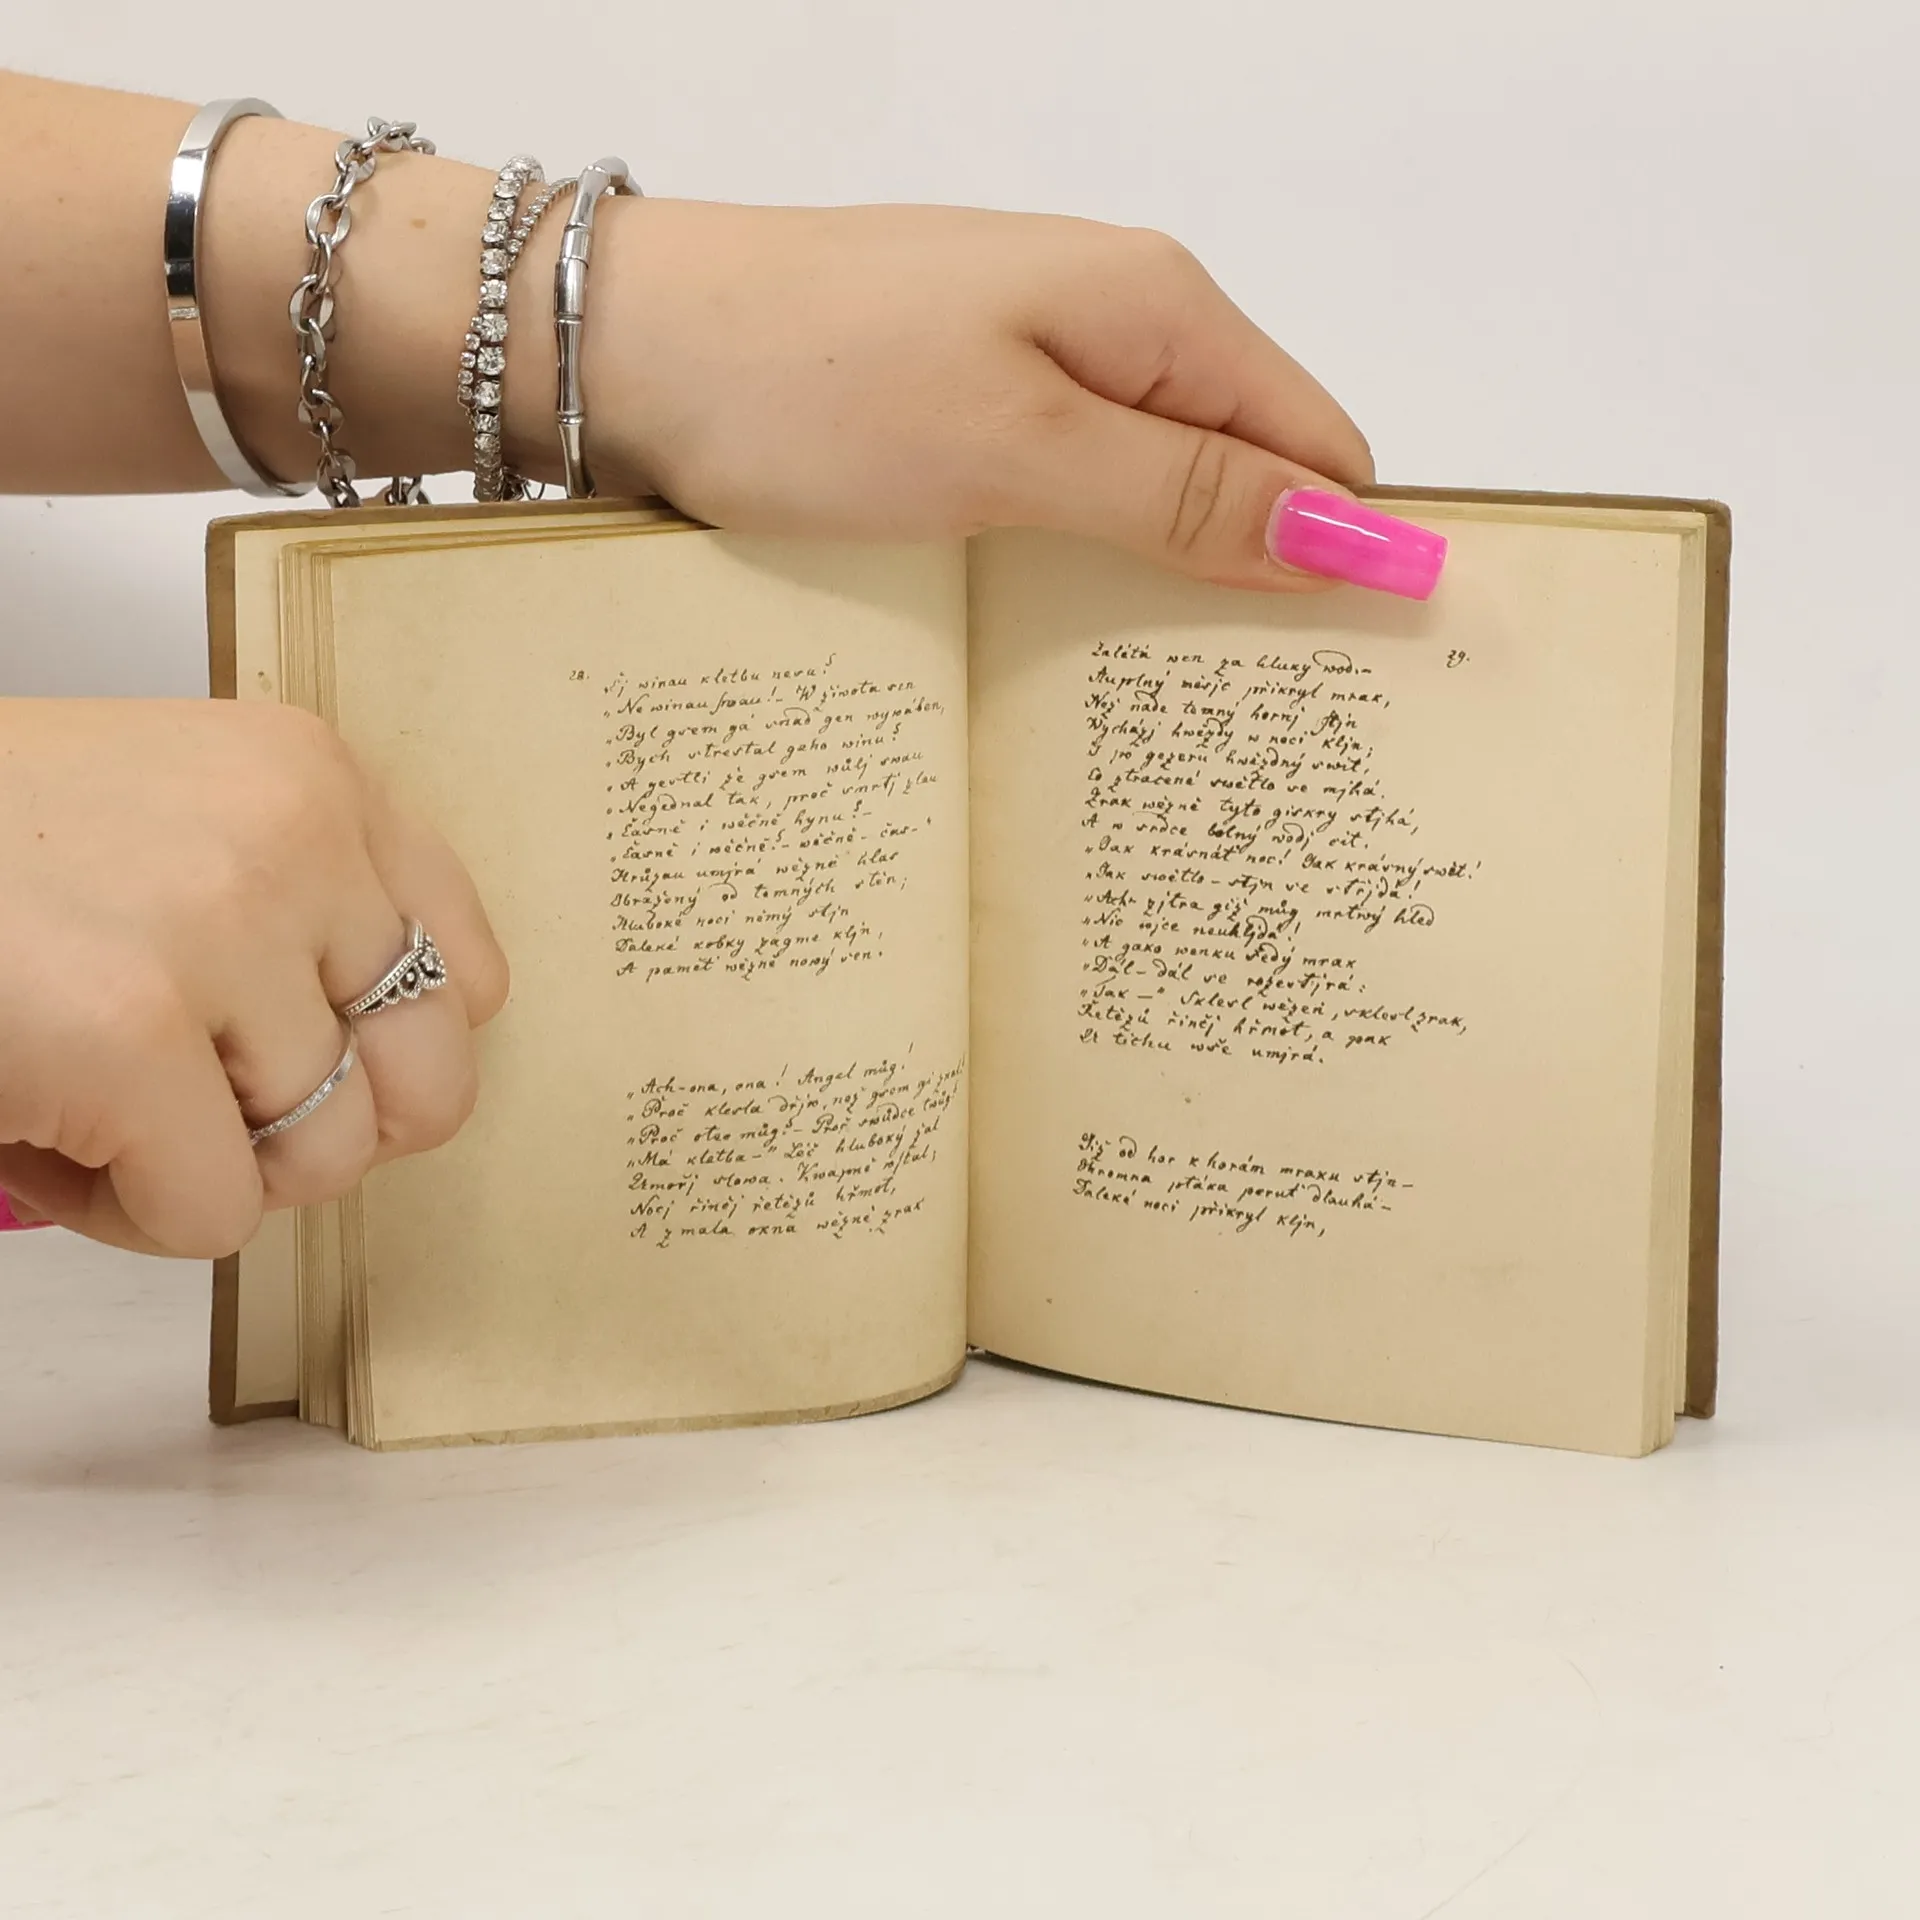 28.
"Čj winau kletbu nesu?
"Ne winau swau! — W žiwota sen
"Byl gsem gá snad gen wywáben,
"Bych strestal geho winu?
"A gestli že gsem wůlj swau
"Negednal tak, proč smrtj zlau
"Časně i wěčně hynu? —
"Časně i wěčně? — wěčně — čas —"
Hrůzau umjrá wězně hlas
Obražený od temných stěn;
Hluboké noci němý stjn
Daleké kobky zagme kljn,
A paměť wězně nowý sen.
"Ach — ona, ona! Angel můg!
"Proč klesla dřjw, než gsem gi znal?
"Proč otec můg? — Proč swůdce twůg?
"Má kletba —" Léč hluboký žal
Umořj slowa. Kwapně wstal;
Nocj řinčj řetězů hřmot,
A z mala okna wězně zrak
29.
Zalétá wen za hluky wod. —
Auplný měsjc přikryl mrak,
Než nade temný hornj stjn
Wycházj hwězdy w noci kljn;
I po gezeru hwězdný swit,
Co ztracené swětlo se mjhá.
Zrak wězně tyto giskry stjhá,
A w srdce bolný wodj cit.
"Jak krásnáť noc! Jak krásný swět!
"Jak swětlo — stjn se střjdá!
"Ach — zjtra giž můg mrtwý hled
"Nic wjce neuhljdá!
"A gako wenku šedý mrak
"Dál — dál se rozestjrá:
"Tak —" Sklesl wězeň, sklesl zrak,
Řetězů řinčj hřmot, a pak
U tichu wše umjrá.
Giž od hor k horám mraku stjn —
Ohromna ptáka peruť dlauhá —
Daleké noci přikryl kljn,